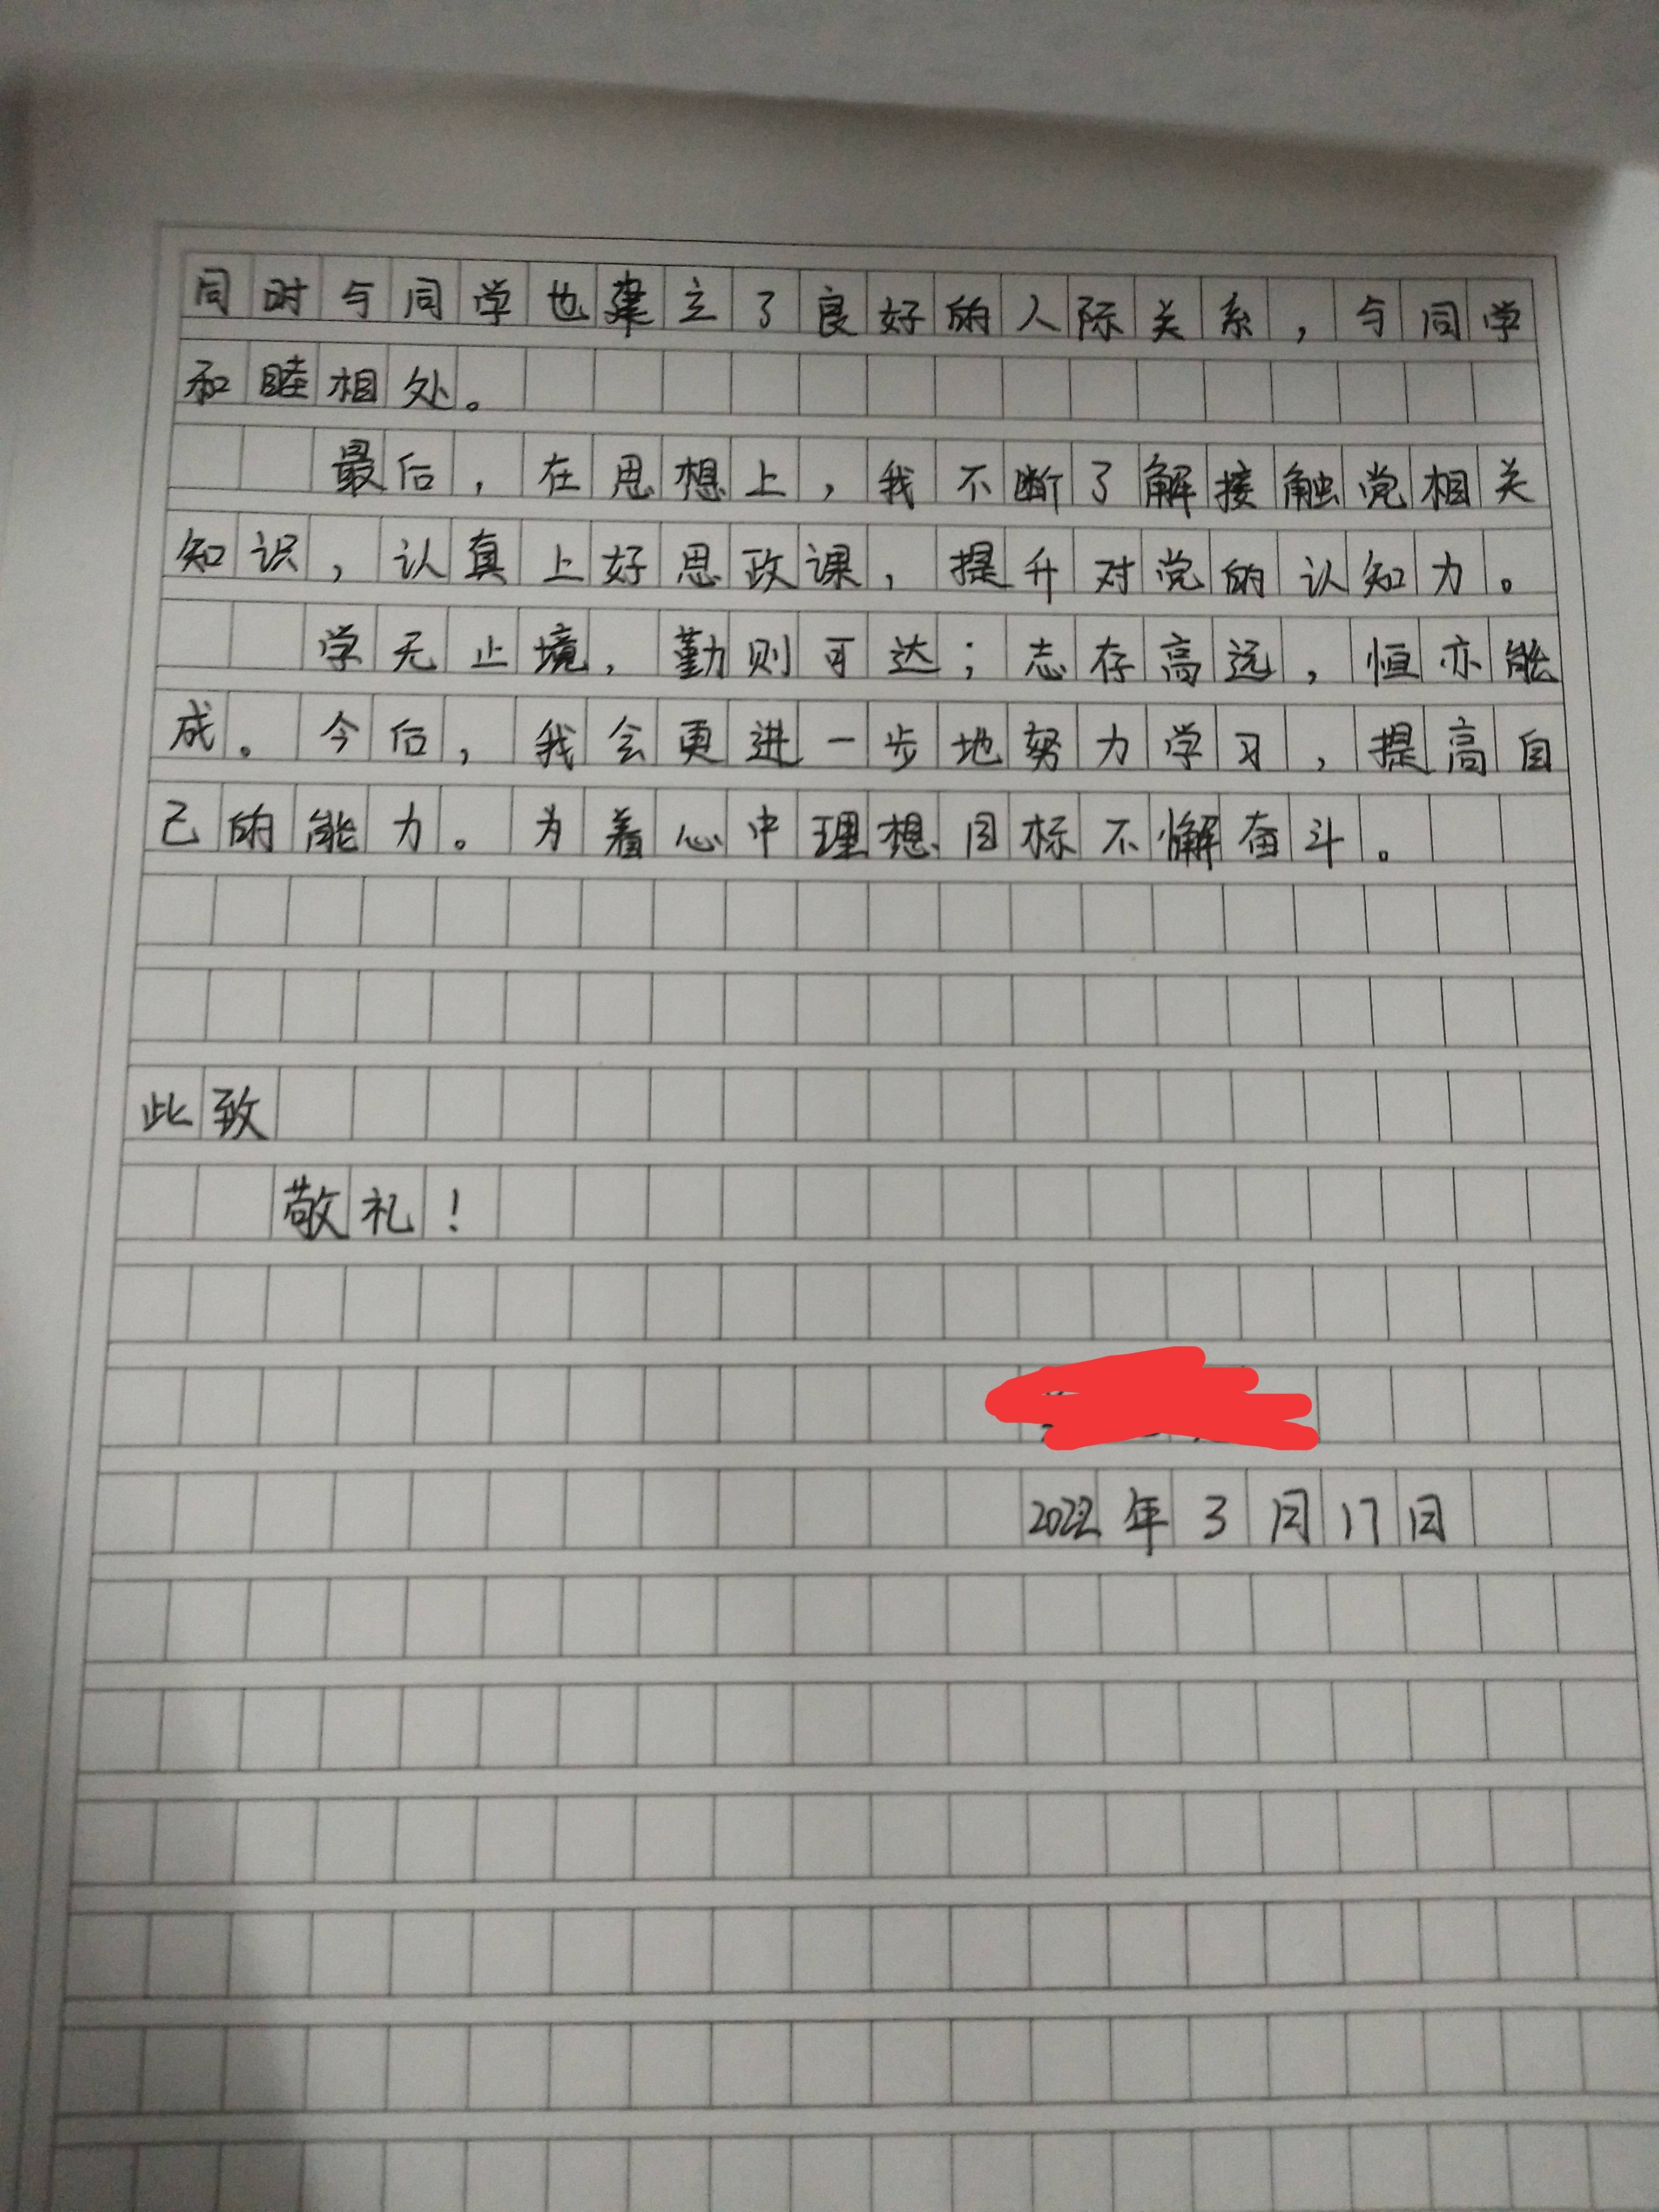 同时与同学也建立了良好的人际关系，与同学
和睦相处。
最后，在思想上，我不断了解接触党相关
知识，认真上好思政课，提升对党的认知力。
学无止境，勤则可达；志存高远，恒亦能
成。今后，我会更进一步地努力学习，提高自
己的能力。为着心中理想、目标不懈奋斗。
此致
敬礼！
2022年3月17日